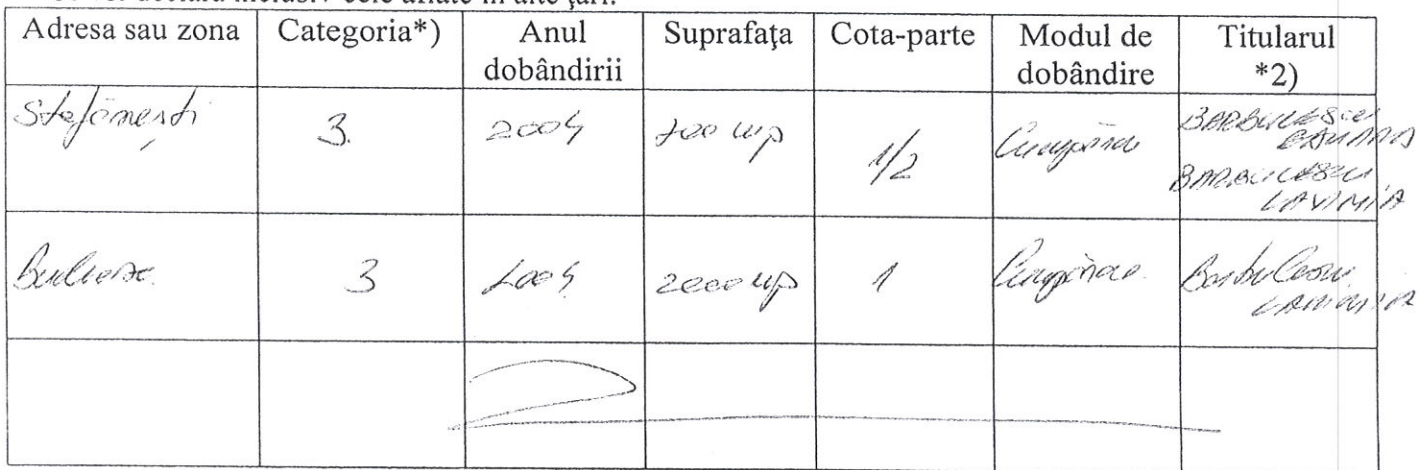 Adresa sau zona Categoria*) Anul dobândirii Suprafaţa Cota-parte Modul de dobândire Titularul *2)
Ştefăneşti 3. 2004 700 mp 1/2 Cumpărare BARBULESCU
BARBULESCU LAVINIA
3 2004 2000 mp 1 Cumpărare Barbulescu LAVINIA